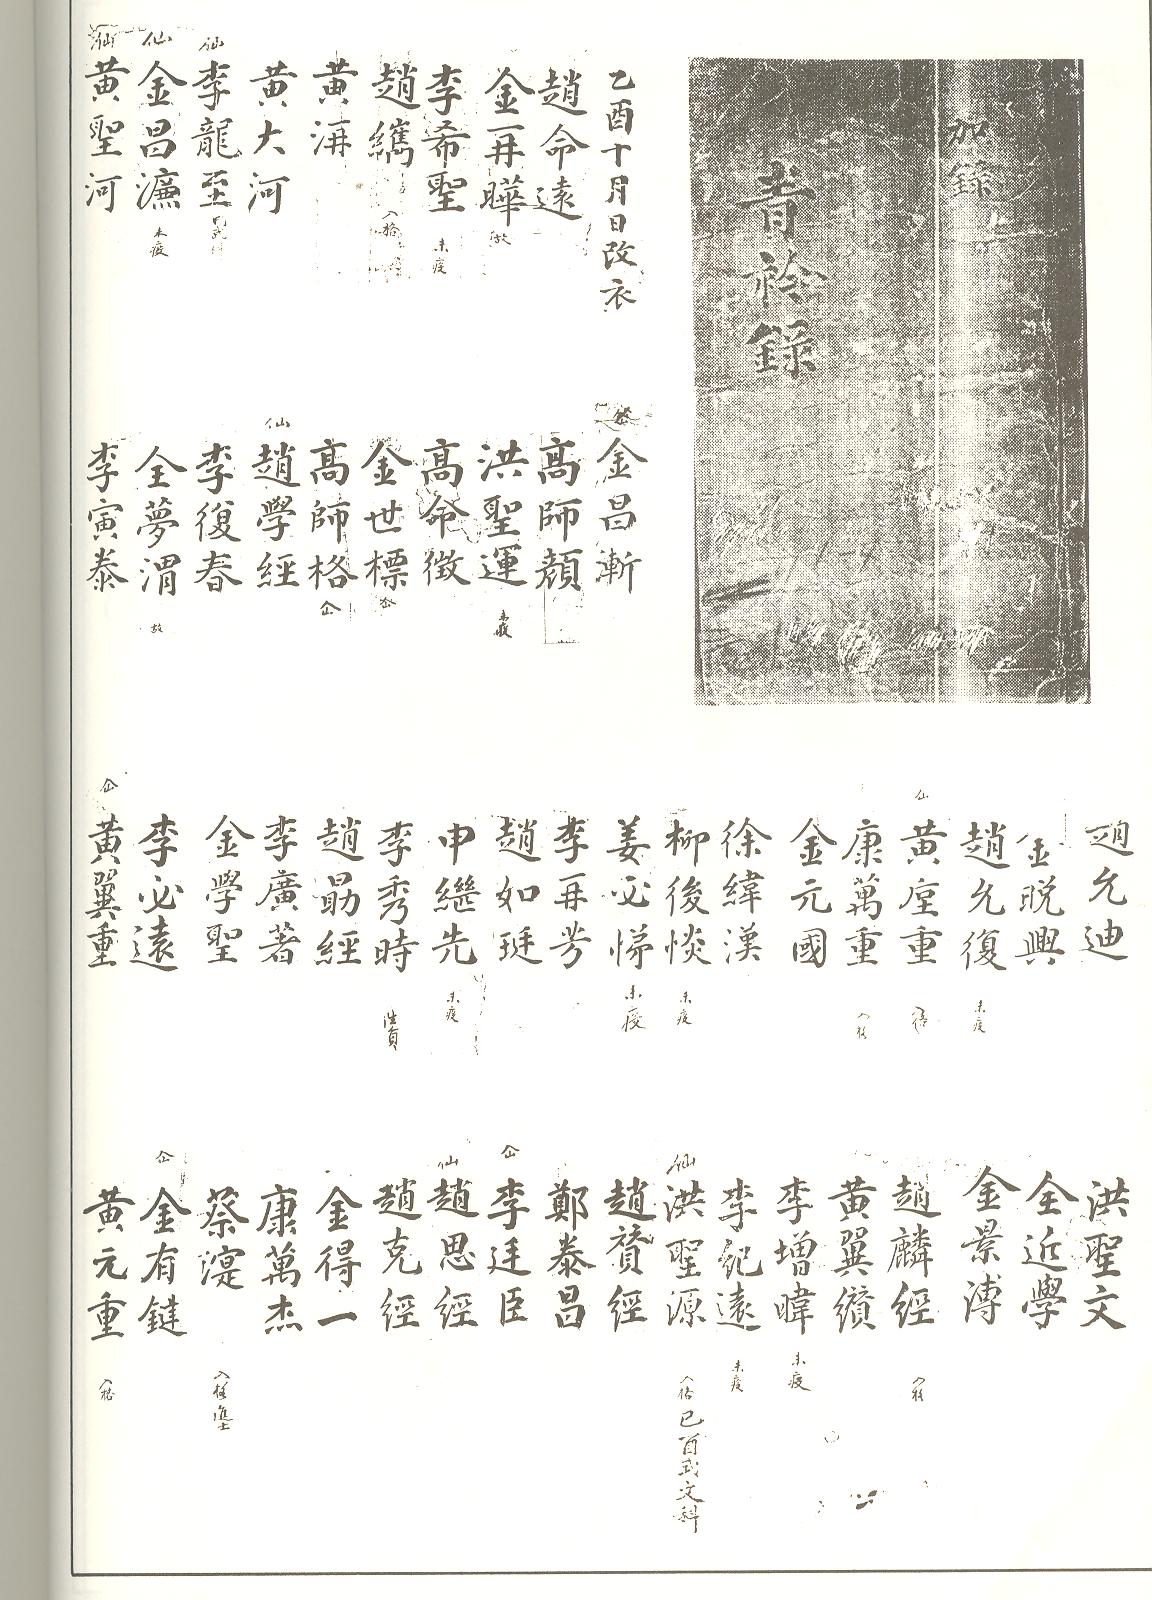 加錄
青衿錄
乙酉十月日改衣
趙命遠
金再曄 故
李希聖 未疫
趙 入格
黃
黃大河
仙 李龍至
仙 金昌濂 未疫
仙 黃聖河
金昌漸
高師顔
洪聖運 未疫
高命徵
金世標 仚
高師格 仚
仙 趙學經
李復春
全夢渭 故
李寅泰
趙允迪
金晩興
趙允復 未疫
仙 黃垕重 入格
康萬重 入格
金元國
徐緯漢
柳後惔 未疫
姜必悌 未疫
李再芳
趙如珽
申繼先 未疫
李秀時
趙勗經
李廣著
金學聖
李必遠
仚 黃翼重
洪聖文
全近學
金景溥
趙麟經 入格
黃翼纘
李增暐 未疫
李紀遠 未疫
仙 洪聖源 入格 己酉式文科
趙贇經
鄭泰昌
仚 李廷臣
仙 趙思經
趙克經
金得一
康萬杰
蔡湜 入格 進士
仚 金有鍵
黃元重 入格